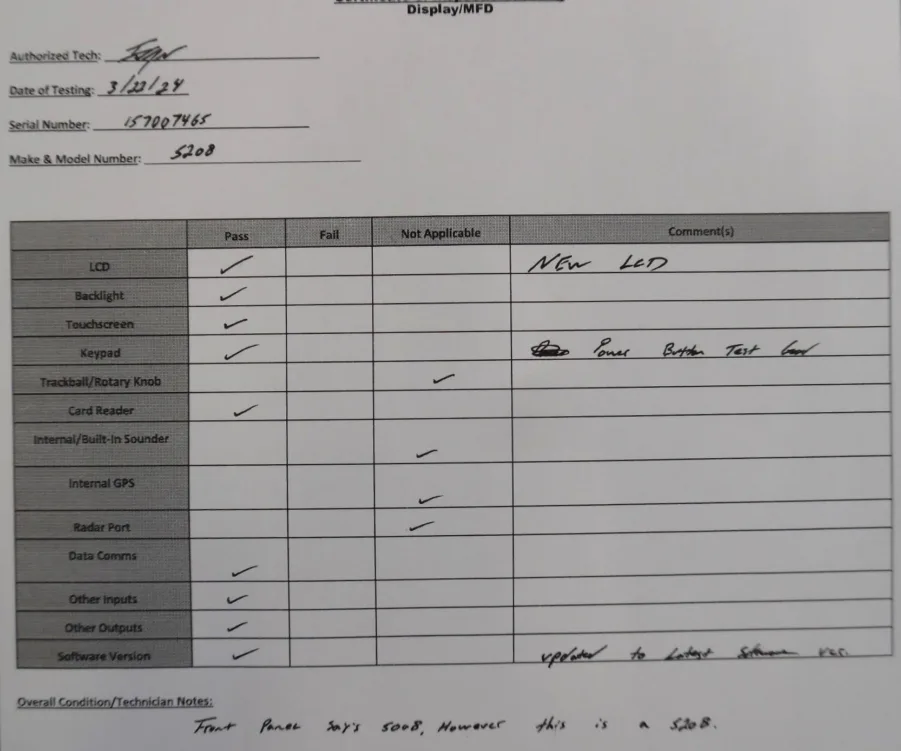 Display/MFD
Authorized Tech:
Date of Testing: 3/22/24
Serial Number: 157007465
Make & Model Number: S208
Pass Fail Not Applicable Comment(s)
LCD ✓ NEW LCD
Backlight ✓
Touchscreen ✓
Keypad ✓ Power Button Test Good
Trackball/Rotary Knob ✓
Card Reader ✓
Internal/Built-In Sounder ✓
Internal GPS ✓
Radar Port ✓
Data Comms ✓
Other Inputs ✓
Other Outputs ✓
Software Version ✓ updated to Latest Software ver.
Overall Condition/Technician Notes:
Front Panel Say's 5008, However this is a S208.